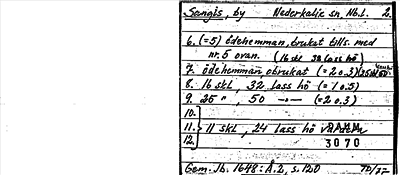 Sangis, by Nederkalix sn, Nb.l. 2.
6. (=5) ödehemman, brukat tills. med
nr. 5 ovan. (16 skl 32 lass hö)
7. ödehemman obrukat (=2 o.3)
8. 16 skl, 32 lass hö (=1 o.5)
9. 25 " , 50 —"— (=2 o.3)
10.
11. 11 skl, 24 lass hö
12.
3070
Gem. Jb. 1648: Å.2, s. 120 72/77